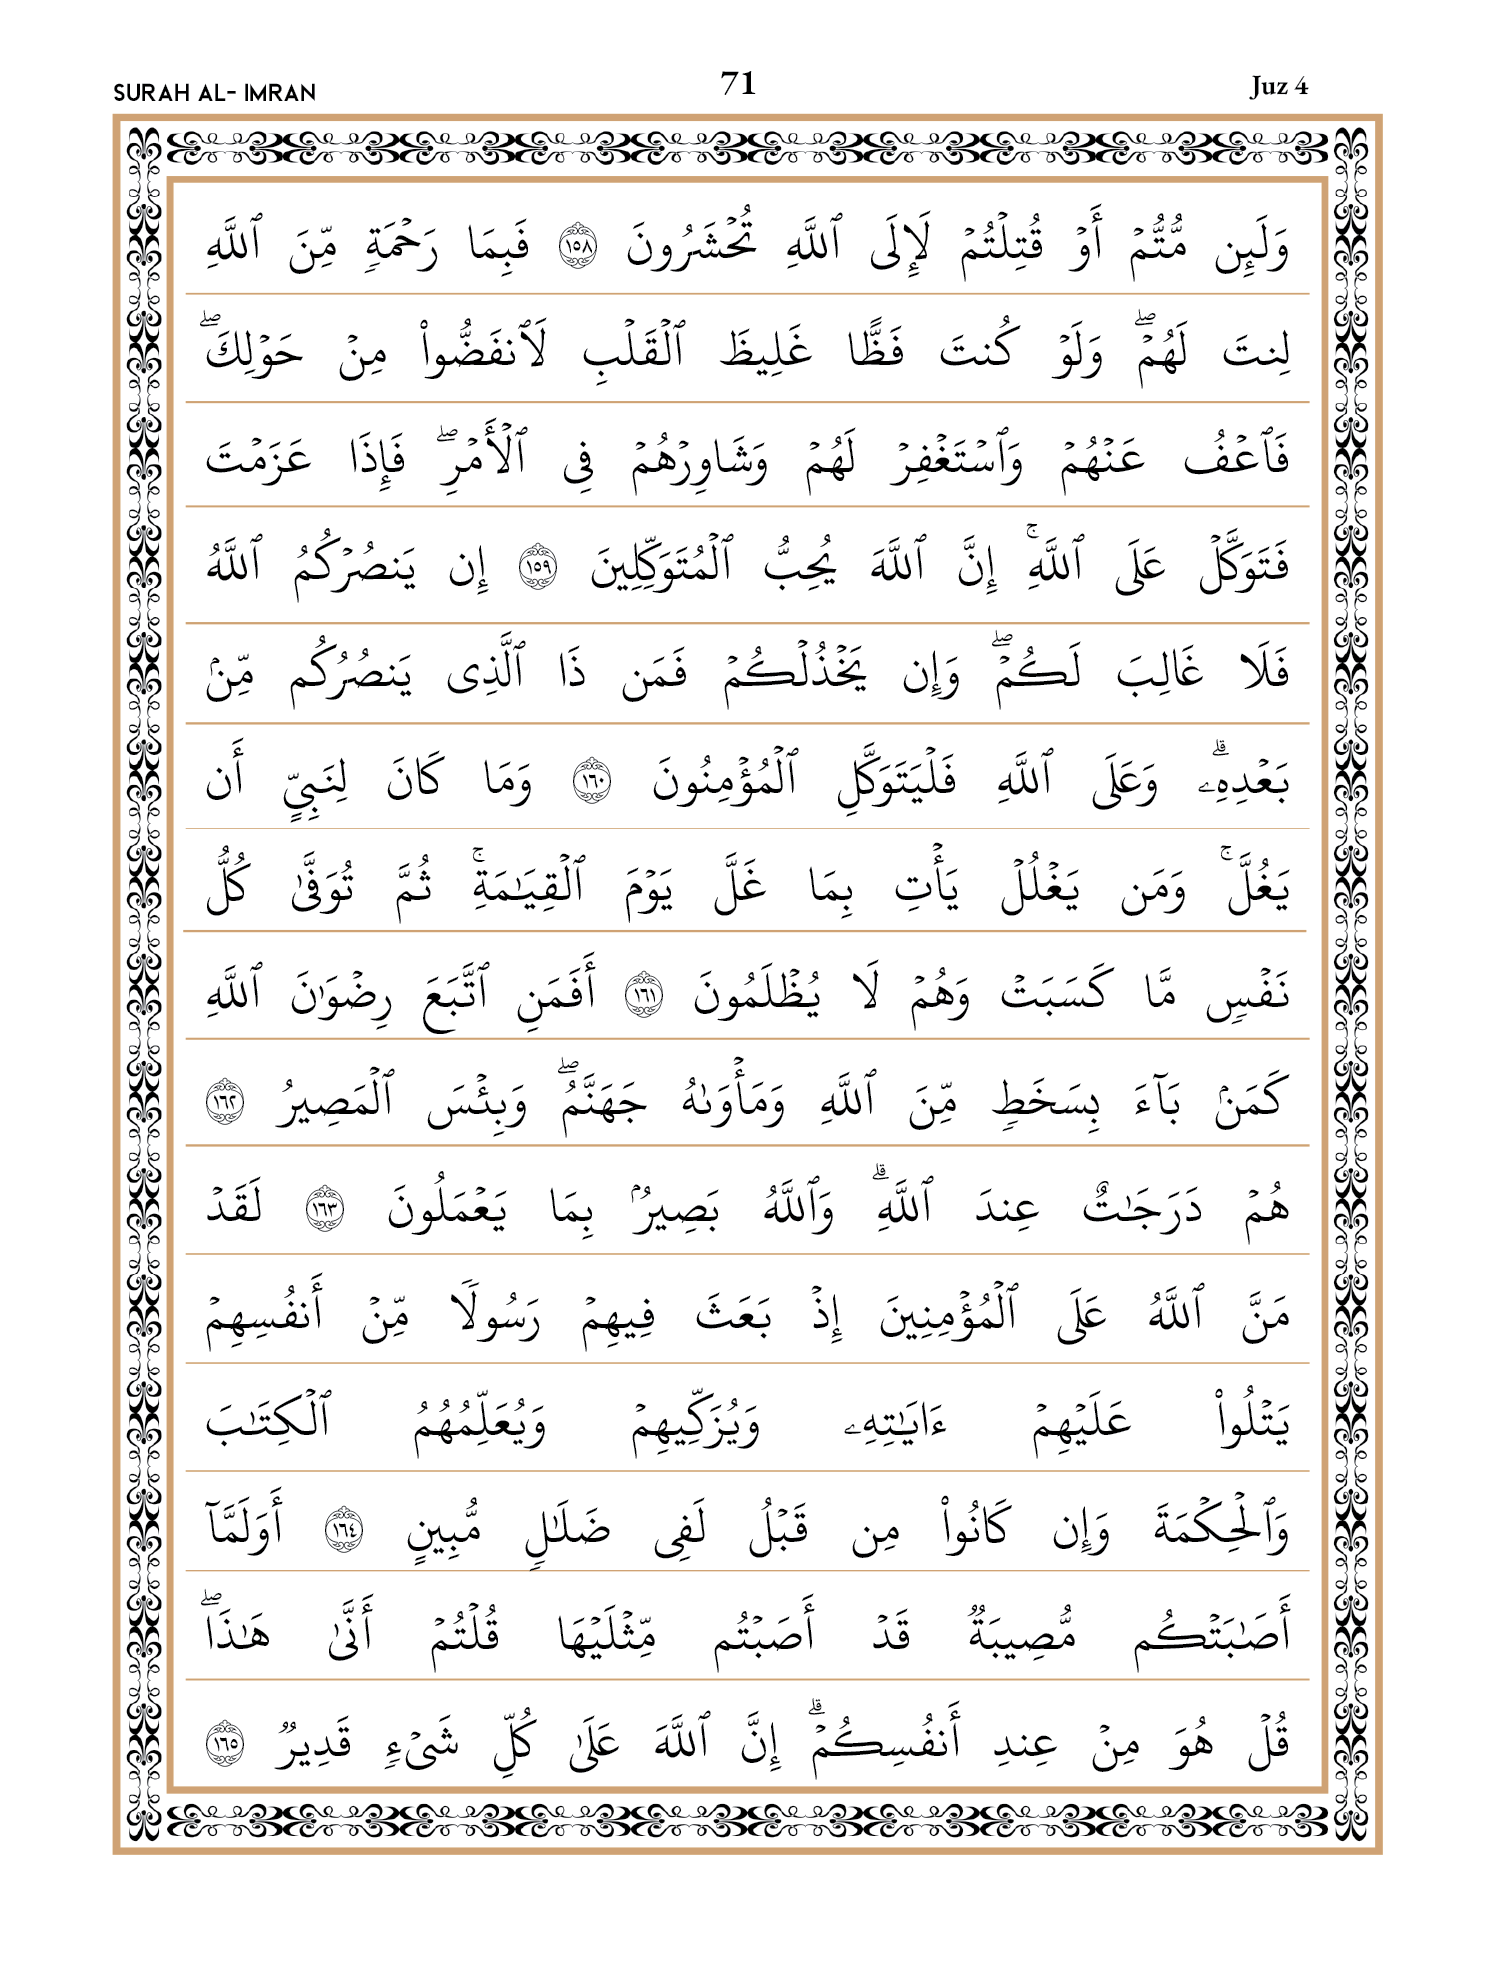 SURAH AL- IMRAN 71 Juz 4
وَلَئِن مُّتُّمْ أَوْ قُتِلْتُمْ لَإِلَى ٱللَّهِ تُحْشَرُونَ ١٥٨ فَبِمَا رَحْمَةٍ مِّنَ ٱللَّهِ
لِنتَ لَهُمْ ۖ وَلَوْ كُنتَ فَظًّا غَلِيظَ ٱلْقَلْبِ لَٱنفَضُّوا۟ مِنْ حَوْلِكَ ۖ
فَٱعْفُ عَنْهُمْ وَٱسْتَغْفِرْ لَهُمْ وَشَاوِرْهُمْ فِى ٱلْأَمْرِ ۖ فَإِذَا عَزَمْتَ
فَتَوَكَّلْ عَلَى ٱللَّهِ ۚ إِنَّ ٱللَّهَ يُحِبُّ ٱلْمُتَوَكِّلِينَ ١٥٩ إِن يَنصُرْكُمُ ٱللَّهُ
فَلَا غَالِبَ لَكُمْ ۖ وَإِن يَخْذُلْكُمْ فَمَن ذَا ٱلَّذِى يَنصُرُكُم مِّنۢ
بَعْدِهِۦ ۗ وَعَلَى ٱللَّهِ فَلْيَتَوَكَّلِ ٱلْمُؤْمِنُونَ ١٦٠ وَمَا كَانَ لِنَبِىٍّ أَن
يَغُلَّ ۚ وَمَن يَغْلُلْ يَأْتِ بِمَا غَلَّ يَوْمَ ٱلْقِيَـٰمَةِ ۚ ثُمَّ تُوَفَّىٰ كُلُّ
نَفْسٍ مَّا كَسَبَتْ وَهُمْ لَا يُظْلَمُونَ ١٦١ أَفَمَنِ ٱتَّبَعَ رِضْوَٰنَ ٱللَّهِ
كَمَنۢ بَآءَ بِسَخَطٍ مِّنَ ٱللَّهِ وَمَأْوَىٰهُ جَهَنَّمُ ۖ وَبِئْسَ ٱلْمَصِيرُ ١٦٢
هُمْ دَرَجَـٰتٌ عِندَ ٱللَّهِ ۗ وَٱللَّهُ بَصِيرٌۢ بِمَا يَعْمَلُونَ ١٦٣ لَقَدْ
مَنَّ ٱللَّهُ عَلَى ٱلْمُؤْمِنِينَ إِذْ بَعَثَ فِيهِمْ رَسُولًا مِّنْ أَنفُسِهِمْ
يَتْلُوا۟ عَلَيْهِمْ ءَايَـٰتِهِۦ وَيُزَكِّيهِمْ وَيُعَلِّمُهُمُ ٱلْكِتَـٰبَ
وَٱلْحِكْمَةَ وَإِن كَانُوا۟ مِن قَبْلُ لَفِى ضَلَـٰلٍ مُّبِينٍ ١٦٤ أَوَلَمَّآ
أَصَـٰبَتْكُم مُّصِيبَةٌ قَدْ أَصَبْتُم مِّثْلَيْهَا قُلْتُمْ أَنَّىٰ هَـٰذَا ۖ
قُلْ هُوَ مِنْ عِندِ أَنفُسِكُمْ ۗ إِنَّ ٱللَّهَ عَلَىٰ كُلِّ شَىْءٍ قَدِيرٌ ١٦٥